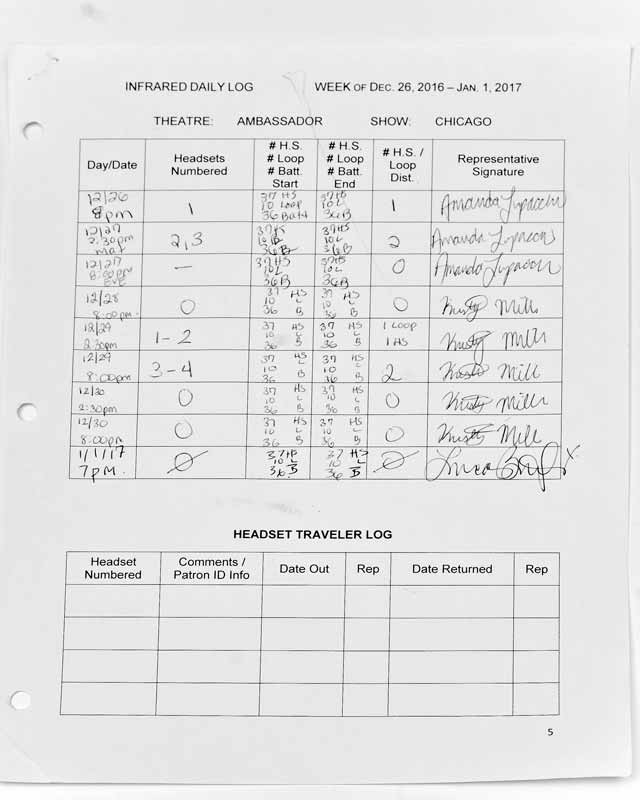 INFRARED DAILY LOG WEEK OF DEC. 26, 2016 – JAN. 1, 2017
THEATRE: AMBASSADOR SHOW: CHICAGO
Day/Date
Headsets
Numbered
# H.S.
# Loop
# Batt.
Start
# H.S.
# Loop
# Batt.
End
# H.S. /
Loop
Dist.
Representative
Signature
12/26
8pm
1
37 HS
10 Loop
36 Batt
37 HS
10 L
36 B
1
Amanda
12/27
2:30pm
mat
2,3
37
10 L
36 B
37HS
10 L
36 B
2
Amanda
12/27
8:00pm
EVE
—
37 HS
10 L
36 B
37HS
10 L
36 B
0
Amanda
12/28
8:00pm
0
37 HS
10 L
36 B
37 HS
10 L
36 B
0
Kristy Mill
12/29
2:30pm
1-2
37 HS
10 L
36 B
37 HS
10 L
36 B
1 Loop
1 HS
Kristy Mill
12/29
8:00pm
3-4
37 HS
10 L
36 B
37 HS
10 L
36 B
2
Kristy Mill
12/30
2:30pm
0
37 HS
10 L
36 B
37 HS
10 L
36 B
0
Kristy Mill
12/30
8:00pm
0
37 HS
10 L
36 B
37 HS
10 L
36 B
0
Kristy Mill
1/1/17
7PM.
0
37
10 L
36 B
37 HS
10 L
36 B
0
HEADSET TRAVELER LOG
Headset
Numbered
Comments /
Patron ID Info
Date Out
Rep
Date Returned
Rep
5